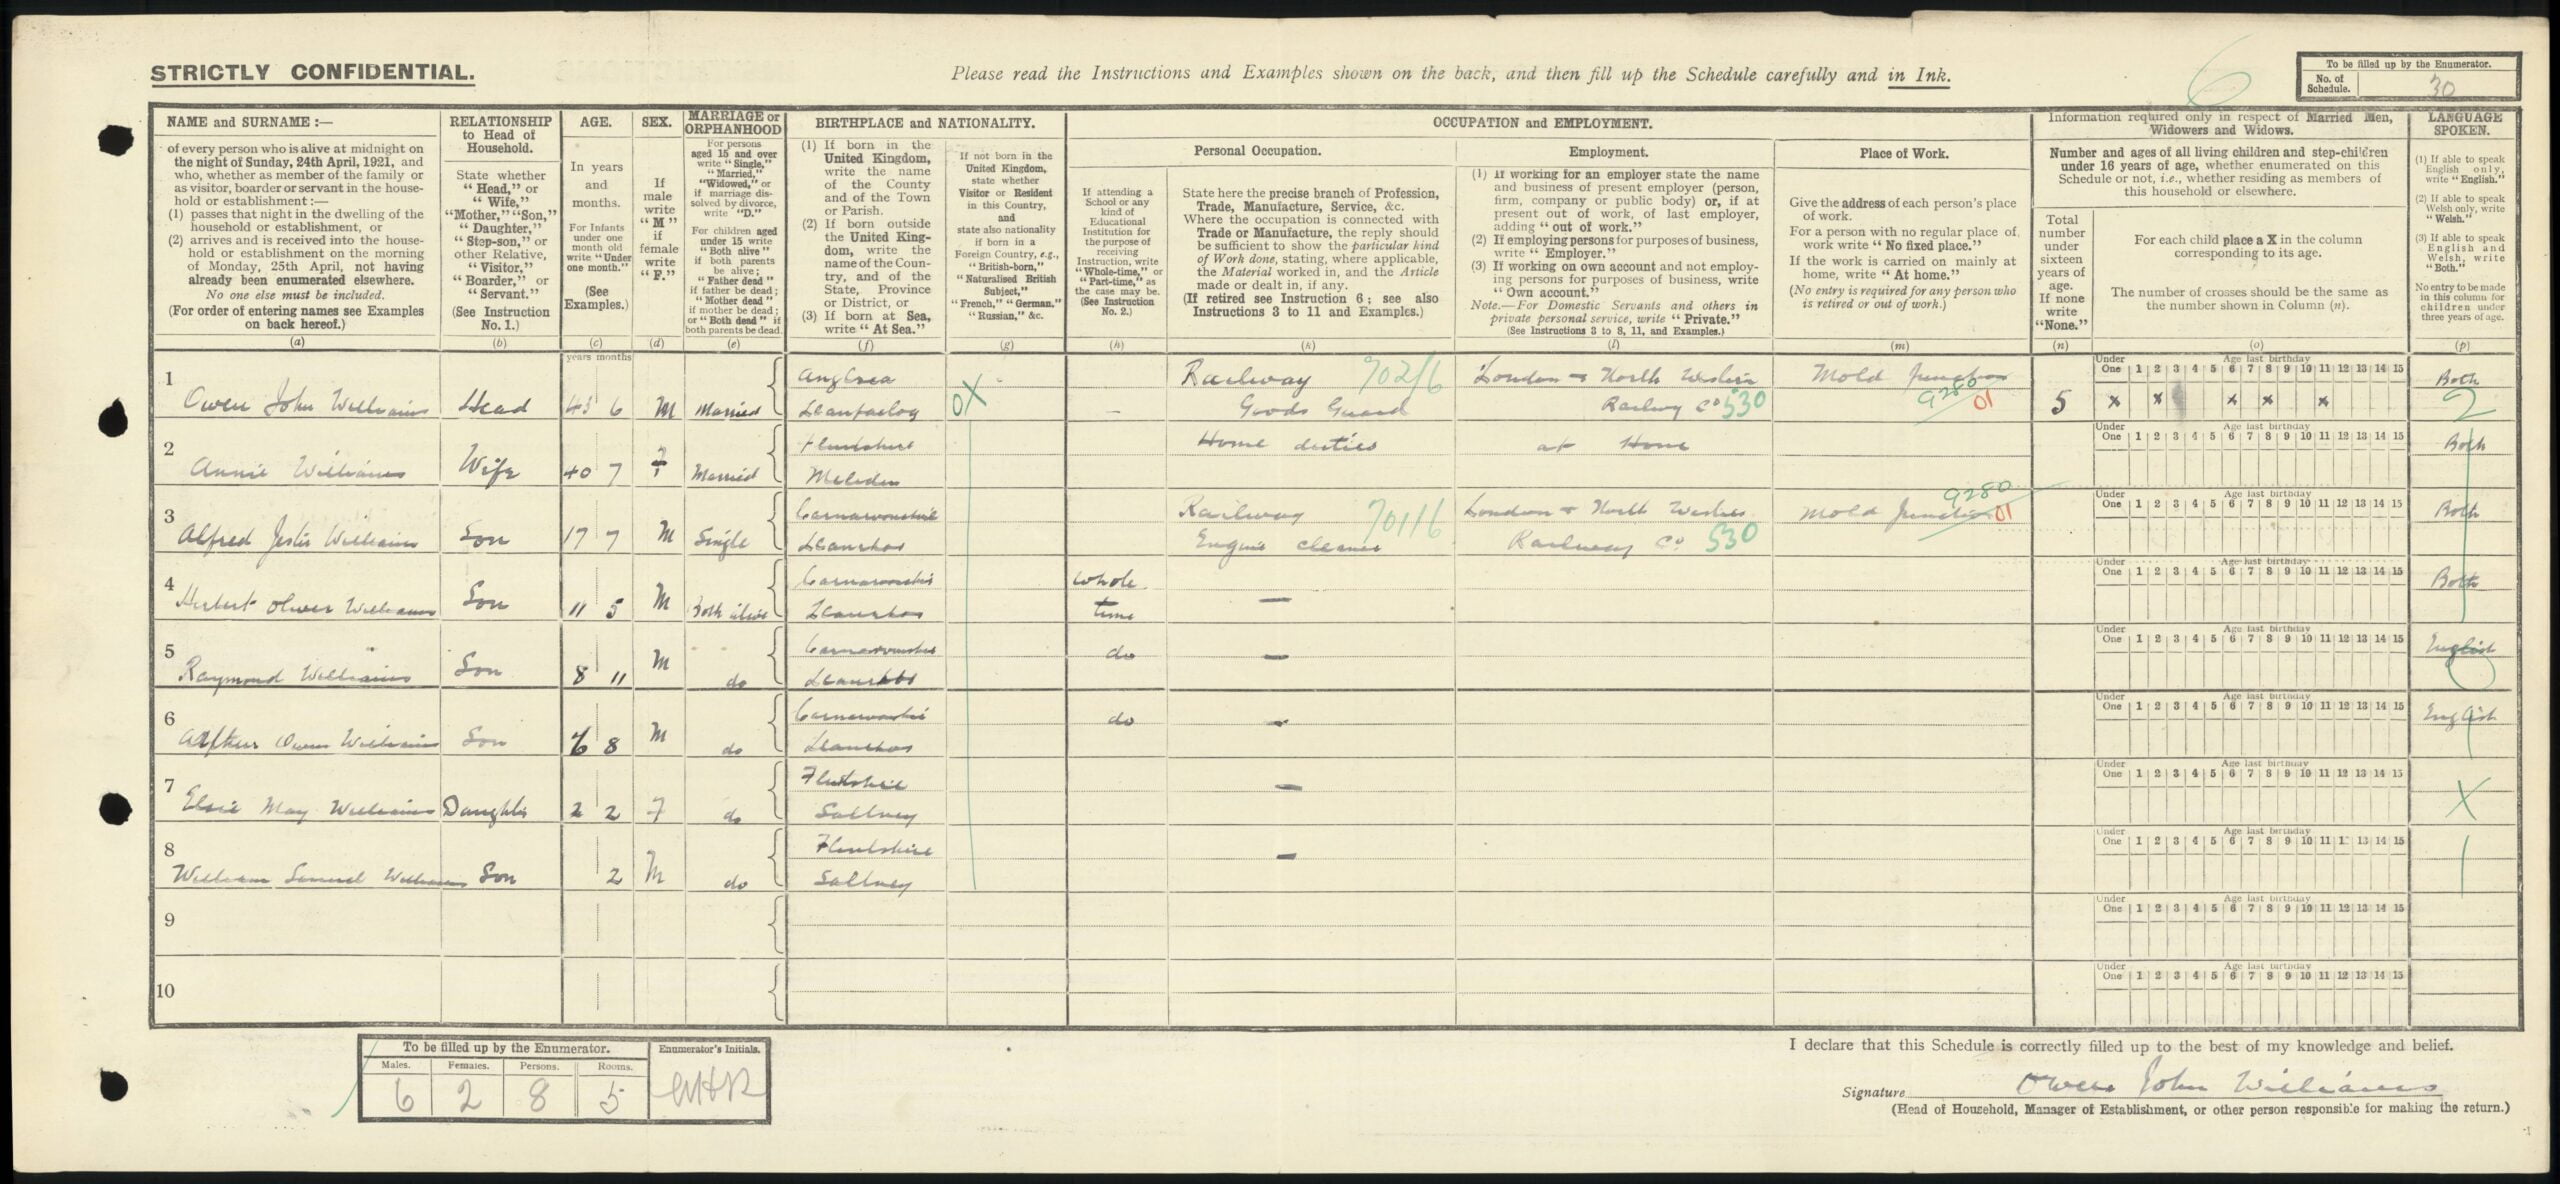 STRICTLY CONFIDENTIAL.
Please read the Instructions and Examples shown on the back, and then fill up the Schedule carefully and in Ink.
6
To be filled up by the Enumerator.
No. of Schedule. 30
NAME and SURNAME :—
of every person who is alive at midnight on
the night of Sunday, 24th April, 1921, and
who, whether as member of the family or
as visitor, boarder or servant in the house-
hold or establishment :—
(1) passes that night in the dwelling of the
household or establishment, or
(2) arrives and is received into the house-
hold or establishment on the morning
of Monday, 25th April, not having
already been enumerated elsewhere.
No one else must be included.
(For order of entering names see Examples
on back hereof.)
(a)
RELATIONSHIP
to Head of
Household.
State whether
"Head," or
"Wife,"
"Mother," "Son,"
"Daughter,"
"Step-son," or
other Relative,
"Visitor,"
"Boarder," or
"Servant."
(See Instruction
No. 1.)
(b)
AGE.
In years
and
months.
For Infants
under one
month old
write "Under
one month."
(See
Examples.)
(c)
years months
SEX.
If
male
write
"M"
if
female
write
"F."
(d)
MARRIAGE or
ORPHANHOOD
For persons
aged 15 and over
write "Single,"
"Married,"
"Widowed," or
if marriage dis-
solved by divorce,
write "D."
For children aged
under 15 write
"Both alive"
if both parents
be alive;
"Father dead"
if father be dead;
"Mother dead"
if mother be dead;
or "Both dead" if
both parents be dead.
(e)
BIRTHPLACE and NATIONALITY.
(1) If born in the
United Kingdom,
write the name
of the County
and of the Town
or Parish.
(2) If born outside
the United King-
dom, write the
name of the Coun-
try, and of the
State, Province
or District, or
(3) If born at Sea,
write "At Sea."
(f)
If not born in the
United Kingdom,
state whether
Visitor or Resident
in this Country,
and
state also nationality
if born in a
Foreign Country, e.g.,
"British-born,"
"Naturalised British
Subject,"
"French," "German."
"Russian," &c.
(g)
OCCUPATION and EMPLOYMENT.
Personal Occupation.
If attending a
School or any
kind of
Educational
Institution for
the purpose of
receiving
Instruction, write
"Whole-time," or
"Part-time," as
the case may be.
(See Instruction
No. 2.)
(h)
State here the precise branch of Profession,
Trade, Manufacture, Service, &c.
Where the occupation is connected with
Trade or Manufacture, the reply should
be sufficient to show the particular kind
of Work done, stating, where applicable,
the Material worked in, and the Article
made or dealt in, if any.
(If retired see Instruction 6; see also
Instructions 3 to 11 and Examples.)
(k)
Employment.
(1) If working for an employer state the name
and business of present employer (person,
firm, company or public body) or, if at
present out of work, of last employer,
adding "out of work."
(2) If employing persons for purposes of business,
write "Employer."
(3) If working on own account and not employ-
ing persons for purposes of business, write
"Own account."
Note.—For Domestic Servants and others in
private personal service, write "Private."
(See Instructions 3 to 8, 11, and Examples.)
(l)
Place of Work.
Give the address of each person's place
of work.
For a person with no regular place of
work write "No fixed place."
If the work is carried on mainly at
home, write "At home."
(No entry is required for any person who
is retired or out of work.)
(m)
Information required only in respect of Married Men,
Widowers and Widows.
Number and ages of all living children and step-children
under 16 years of age, whether enumerated on this
Schedule or not, i.e., whether residing as members of
this household or elsewhere.
Total
number
under
sixteen
years of
age.
If none
write
"None."
(n)
For each child place a X in the column
corresponding to its age.
The number of crosses should be the same as
the number shown in Column (n).
(o)
LANGUAGE
SPOKEN.
(1) If able to speak
English only,
write "English."
(2) If able to speak
Welsh only, write
"Welsh."
(3) If able to speak
English and
Welsh, write
"Both."
No entry to be made
in this column for
children under
three years of age.
(p)
Under One Age last birthday 1 2 3 4 5 6 7 8 9 10 11 12 13 14 15
1 Anglesea Railway 702/6 London & North Western Mold Junction Both
Owen John Williams Head 6 M Married Llanfaelog 0X — Goods Guard Railway Co 530 9280 01 5 x x x x x 2
Under One Age last birthday 1 2 3 4 5 6 7 8 9 10 11 12 13 14 15
2 Flintshire Home duties at Home Both
Annie Williams Wife 40 7 F Married Meliden
Under One Age last birthday 1 2 3 4 5 6 7 8 9 10 11 12 13 14 15
3 Carnarvonshire Railway 701/6 London & North Western Mold Junction 9280 01 Both
Alfred Williams Son 17 7 M Single Llanrhos Engine cleaner Railway Co 530
Under One Age last birthday 1 2 3 4 5 6 7 8 9 10 11 12 13 14 15
4 Carnarvonshire whole — Both
Herbert Oliver Williams Son 11 5 M Both alive Llanrhos time
Under One Age last birthday 1 2 3 4 5 6 7 8 9 10 11 12 13 14 15
5 Carnarvonshire do — English
Raymond Williams Son 8 11 M do Llanrhos
Under One Age last birthday 1 2 3 4 5 6 7 8 9 10 11 12 13 14 15
6 Carnarvonshire do — English
Arthur Owen Williams Son 6 8 M do Llanrhos
Under One Age last birthday 1 2 3 4 5 6 7 8 9 10 11 12 13 14 15
7 Flintshire — X
Elsie May Williams Daughter 2 2 F do Saltney
Under One Age last birthday 1 2 3 4 5 6 7 8 9 10 11 12 13 14 15
8 Flintshire —
William Samuel Williams Son 2 M do Saltney
Under One Age last birthday 1 2 3 4 5 6 7 8 9 10 11 12 13 14 15
9
Under One Age last birthday 1 2 3 4 5 6 7 8 9 10 11 12 13 14 15
10
To be filled up by the Enumerator.
Enumerator's Initials.
Males. Females. Persons. Rooms.
6 2 8 5
I declare that this Schedule is correctly filled up to the best of my knowledge and belief.
Signature Owen John Williams
(Head of Household, Manager of Establishment, or other person responsible for making the return.)